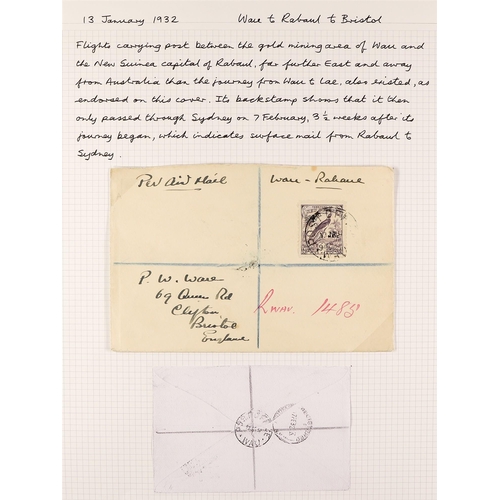 13 January 1932 Wau to Rabaul to Bristol
Flights carrying post between the gold mining area of Wau and
the New Guinea capital of Rabaul, far further East and away
from Australia than the journey from Wau to Lae, also existed, as
endorsed on this cover. Its backstamp shows that it then
only passed through Sydney on 7 February, 3½ weeks after its
journey began, which indicates surface mail from Rabaul to
Sydney.
Per Air Mail Wau - Rabaul
P. W. Ware
69 Queen Rd
Clifton
Bristol
England
1485
WAU